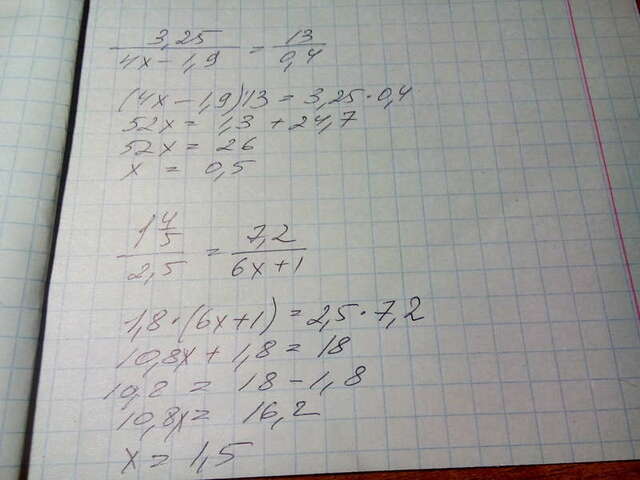 3,25 / 4x - 1,9 = 13 / 0,4
(4x - 1,9)13 = 3,25 · 0,4
52x = 1,3 + 24,7
52x = 26
x = 0,5
1 4/5 / 2,5 = 7,2 / 6x + 1
1,8 · (6x + 1) = 2,5 · 7,2
10,8x + 1,8 = 18
10,8 = 18 - 1,8
10,8x = 16,2
x = 1,5